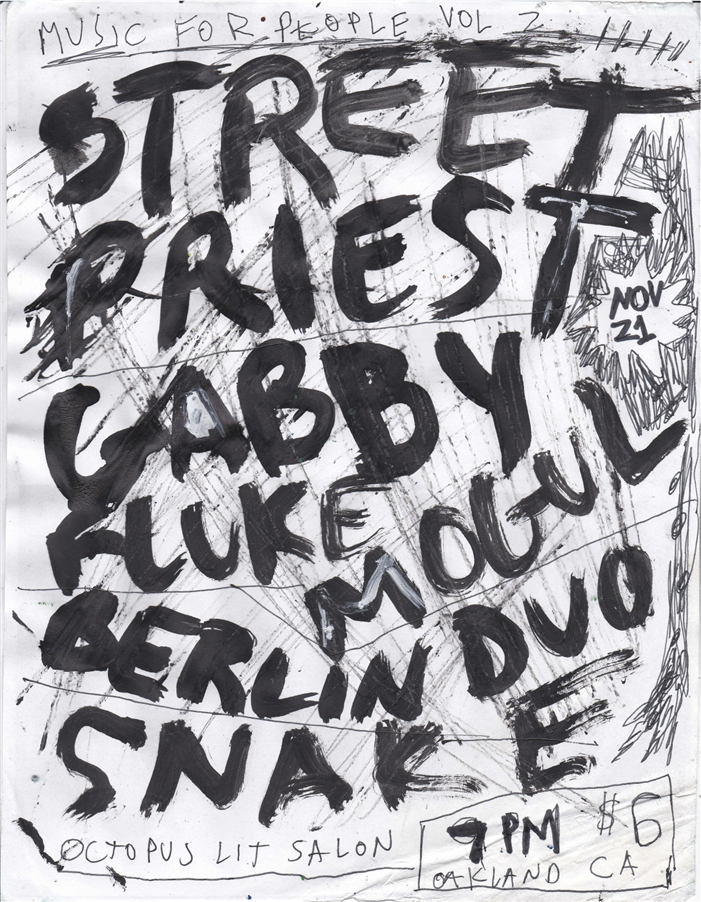 MUSIC FOR PEOPLE VOL 2
STREET
PRIEST
NOV
21
GABBY
FLUKE MOGUL
BERLIN DUO
SNAKE
OCTOPUS LIT SALON
7 PM $6
OAKLAND CA